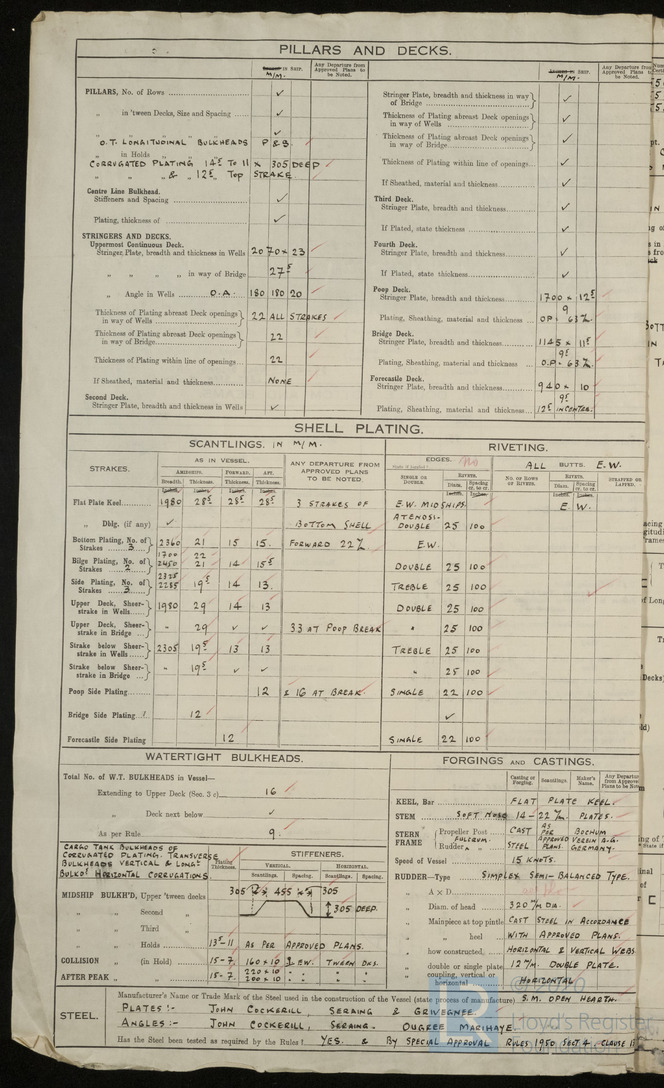 PILLARS AND DECKS.
IN SHIP.
M/M.
Any Departure from Approved Plans to be Noted.
PILLARS, No. of Rows ✓
„ in 'tween Decks, Size and Spacing ✓
„ „ ✓
O.T. LONGITUDINAL BULKHEADS P & S.
„ in Holds
CORRUGATED PLATING 14⁵ TO 11 × 305 DEEP
„ „ & 12⁵ TOP STRAKE
Centre Line Bulkhead.
Stiffeners and Spacing ✓
Plating, thickness of ✓
STRINGERS AND DECKS.
Uppermost Continuous Deck.
Stringer Plate, breadth and thickness in Wells 2070 × 23
„ „ „ „ in way of Bridge 27⁵
„ Angle in Wells O.A. 180 180 20
Thickness of Plating abreast Deck openings in way of Wells 22 ALL STRAKES
Thickness of Plating abreast Deck openings in way of Bridge 22
Thickness of Plating within line of openings 22
If Sheathed, material and thickness NONE
Second Deck.
Stringer Plate, breadth and thickness in Wells ✓
IN SHIP.
M/M.
Any Departure from Approved Plans to be Noted.
Stringer Plate, breadth and thickness in way of Bridge ✓
Thickness of Plating abreast Deck openings in way of Wells ✓
Thickness of Plating abreast Deck openings in way of Bridge ✓
Thickness of Plating within line of openings ✓
If Sheathed, material and thickness ✓
Third Deck.
Stringer Plate, breadth and thickness ✓
If Plated, state thickness ✓
Fourth Deck.
Stringer Plate, breadth and thickness ✓
If Plated, state thickness ✓
Poop Deck.
Stringer Plate, breadth and thickness 1700 × 12⁵
Plating, Sheathing, material and thickness 9 O.P. 63%
Bridge Deck.
Stringer Plate, breadth and thickness 1145 × 11⁵
Plating, Sheathing, material and thickness 9⁵ O.P. 63%
Forecastle Deck.
Stringer Plate, breadth and thickness 940 × 10
Plating, Sheathing, material and thickness 9⁵ 12⁵ IN CONTRA.
SHELL PLATING.
SCANTLINGS. IN M/M.
RIVETING.
STRAKES.
AS IN VESSEL.
AMIDSHIPS. FORWARD. AFT.
Breadth. Thickness. Thickness. Thickness.
ANY DEPARTURE FROM APPROVED PLANS TO BE NOTED.
EDGES.
SINGLE OR DOUBLE.
RIVETS.
Diam. Spacing cr. to cr.
ALL BUTTS. E.W.
NO. OF ROWS OF RIVETS.
RIVETS.
Diam. Spacing cr. to cr.
STRAPPED OR LAPPED.
Flat Plate Keel 1980 28⁵ 28⁵ 28⁵ 3 STRAKES OF E.W. MIDSHIPS E.W.
„ Dblg. (if any) ✓ BOTTOM SHELL AT ENDS:- DOUBLE 25 100
Bottom Plating, No. of Strakes 3 2360 21 15 15 FORWARD 22% E.W.
Bilge Plating, No. of Strakes 2 1700 22 2450 21 14 15⁵ DOUBLE 25 100
Side Plating, No. of Strakes 3 2325 2285 19⁵ 14 13 TREBLE 25 100
Upper Deck, Sheer-strake in Wells 1980 29 14 13 DOUBLE 25 100
Upper Deck, Sheer-strake in Bridge „ 29 ✓ ✓ 33 AT POOP BREAK „ 25 100
Strake below Sheer-strake in Wells 2305 19⁵ 13 13 TREBLE 25 100
Strake below Sheer-strake in Bridge „ 19⁵ ✓ ✓ „ 25 100
Poop Side Plating 12 & 16 AT BREAK SINGLE 22 100
Bridge Side Plating 12 ✓
Forecastle Side Plating 12 SINGLE 22 100
WATERTIGHT BULKHEADS.
Total No. of W.T. BULKHEADS in Vessel—
Extending to Upper Deck (Sec. 3 c) 16
„ Deck next below ✓
As per Rule 9
CARGO TANK BULKHEADS OF CORRUGATED PLATING. TRANSVERSE BULKHEADS VERTICAL & LONGL BULKDS HORIZONTAL CORRUGATIONS.
Plating Thickness.
STIFFENERS.
VERTICAL. HORIZONTAL.
Scantlings. Spacing. Scantlings. Spacing.
MIDSHIP BULKH'D, Upper 'tween decks 305 455 305
„ Second „ 305 DEEP.
„ Third „
„ Holds 13⁵-11 AS PER APPROVED PLANS.
COLLISION „ (in Hold) 15-7 160×10 E.W. TWEEN DKS.
AFTER PEAK „ „ 15-7 220×10 200×10 „ „ „
FORGINGS AND CASTINGS.
Casting or Forging. Scantlings. Maker's Name. Any Departure from Approved Plans to be Noted
KEEL, Bar FLAT PLATE KEEL.
STEM SOFT NOSE 14-22 M/M. PLATES.
STERN FRAME
Propeller Post CAST AS PER BOCHUM
FULCRUM.
Rudder „ STEEL APPROVED PLANS. VEREIN A.G. GERMANY.
Speed of Vessel 15 KNOTS.
RUDDER—Type SIMPLEX SEMI-BALANCED TYPE.
„ A × D
„ Diam. of head 320 M/M DIA.
„ Mainpiece at top pintle CAST STEEL IN ACCORDANCE
„ „ heel WITH APPROVED PLANS.
„ how constructed, HORIZONTAL & VERTICAL WEBS
„ double or single plate 12 M/M. DOUBLE PLATE.
„ coupling, vertical or horizontal HORIZONTAL
STEEL.
Manufacturer's Name or Trade Mark of the Steel used in the construction of the Vessel (state process of manufacture) S.M. OPEN HEARTH.
PLATES:- JOHN COCKERILL, SERAING & GRIVEGNEE.
ANGLES:- JOHN COCKERILL, SERAING. OUGREE MARIHAYE.
Has the Steel been tested as required by the Rules? YES. & BY SPECIAL APPROVAL RULES 1950 SECT 4. CLAUSE 11
© 2020
Lloyd's Register
Foundation